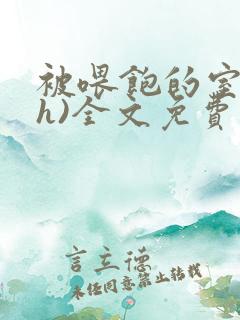 被喂饱的室
h)全文免費
言立德
未任同意禁止转载